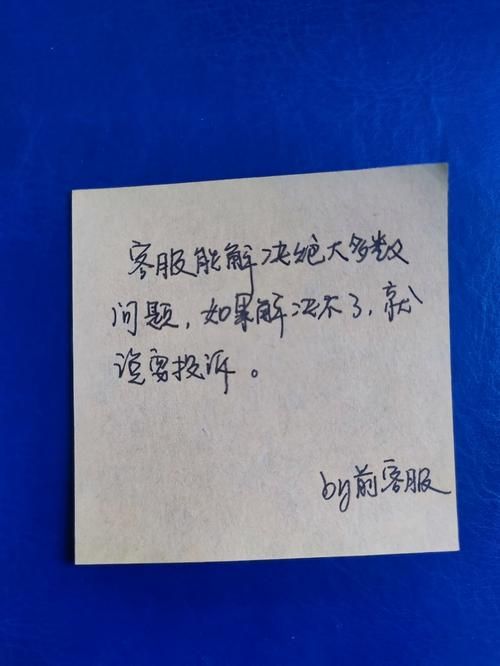 客服能解决绝大多数
问题，如果解决不了，就
说要投诉。
by前客服